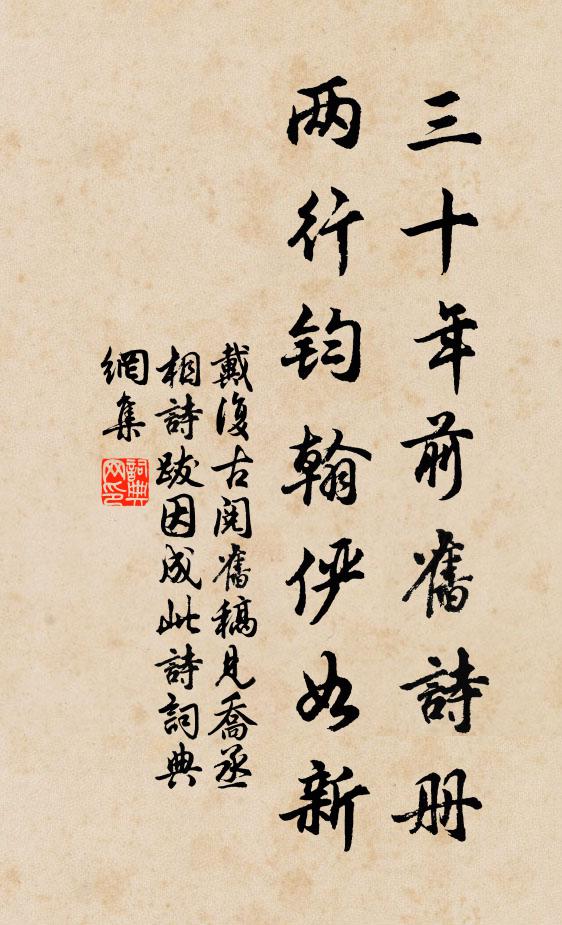 三十年前舊詩册
两行钧翰俨如新
戴復古阅舊稿見喬丞
相詩跋因成此詩詞典
網集
詞典网印